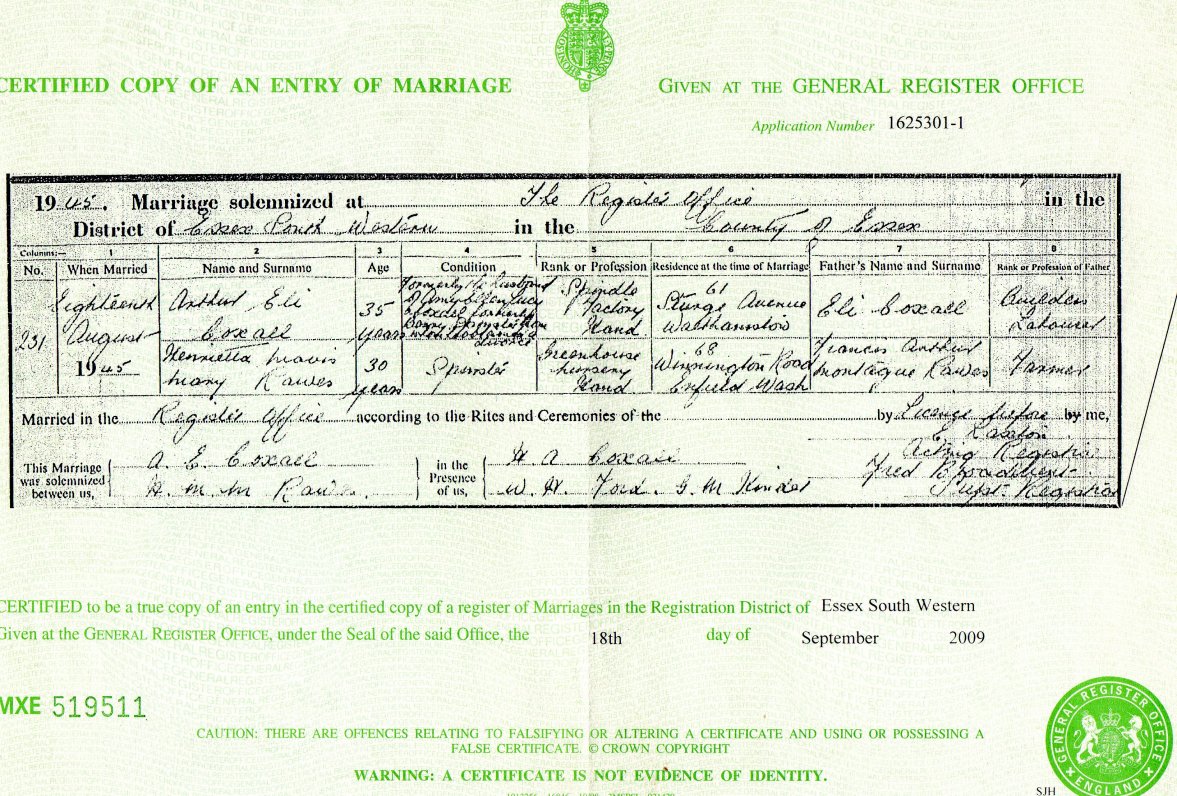 CERTIFIED COPY OF AN ENTRY OF MARRIAGE
GIVEN AT THE GENERAL REGISTER OFFICE
Application Number 1625301-1
1945. Marriage solemnized at The Register Office in the
District of Essex South Western in the County of Essex
Columns:— 1 2 3 4 5 6 7 8
No. When Married Name and Surname Age Condition Rank or Profession Residence at the time of Marriage Father's Name and Surname Rank or Profession of Father
231 Eighteenth August 1945
Arthur Eli Coxall
35 years
Formerly the husband
Spindle Factory Hand
61 Sturge Avenue Walthamstow
Eli Coxall
Builders Labourer
Henrietta Mavis Mary Rawes
30 years
Spinster
Greenhouse Nursery Hand
68 Winnington Road Enfield Wash
Francis Arthur Montague Rawes
Farmer
Married in the Register Office according to the Rites and Ceremonies of the by Licence before by me,
This Marriage was solemnized between us,
A. E. Coxall
H. M. M. Rawes
in the Presence of us,
H A Coxall
W. H. Ford. G. M
Acting Registrar
Fred Broadbent
Supt. Registrar
CERTIFIED to be a true copy of an entry in the certified copy of a register of Marriages in the Registration District of Essex South Western
Given at the GENERAL REGISTER OFFICE, under the Seal of the said Office, the 18th day of September 2009
MXE 519511
CAUTION: THERE ARE OFFENCES RELATING TO FALSIFYING OR ALTERING A CERTIFICATE AND USING OR POSSESSING A
FALSE CERTIFICATE. © CROWN COPYRIGHT
WARNING: A CERTIFICATE IS NOT EVIDENCE OF IDENTITY.
GENERAL REGISTER OFFICE
ENGLAND
SJH